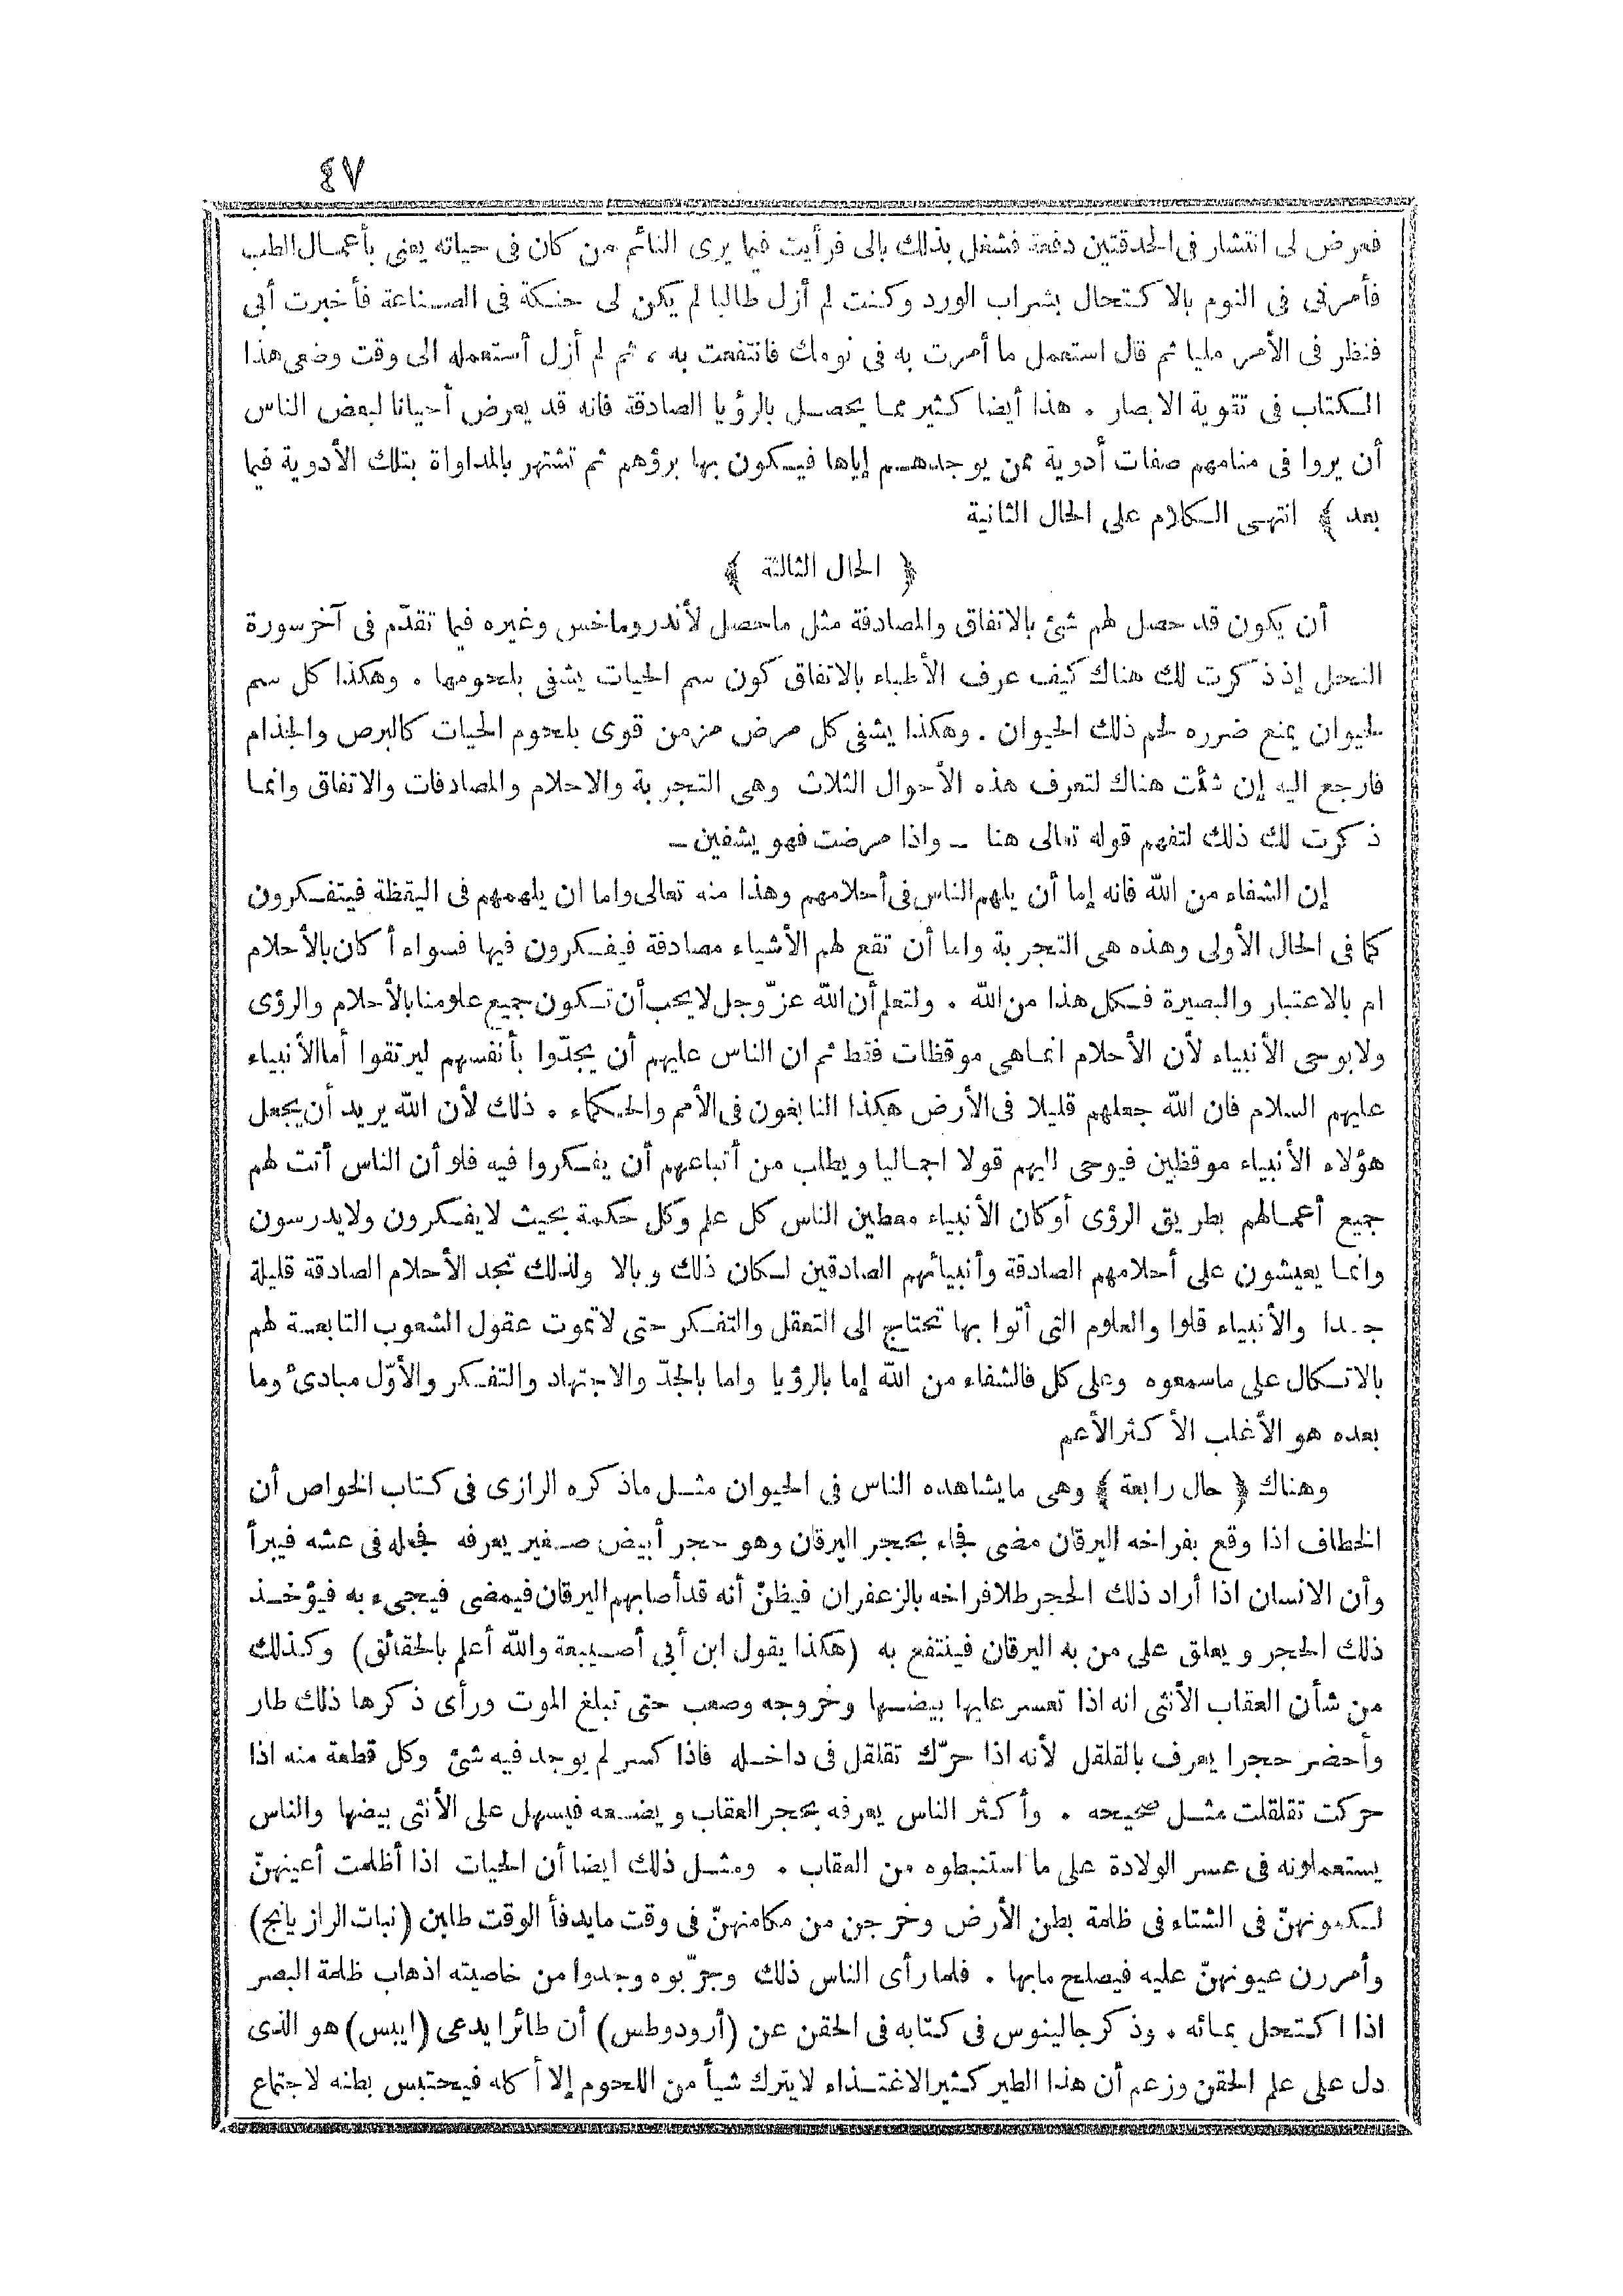 ٤٧
فعرض لى انتشار فى الحدقتين دفعة فشغل بذلك بالى فرأيت فيما يرى النائم من كان فى حياته يعنى بأعمال الطب
فأمرنى فى النوم بالا كتحال بشراب الورد وكنت لم أزل طالبا لم يكن لى حنكة فى الصناعة فأخبرت أبى
فنظر فى الأمر مليا ثم قال استعمل ما أمرت به فى نومك فانتفعت به ، ثم لم أزل أستعمله الى وقت وضعى هذا
الكتاب فى تقوية الابصار . هذا أيضا كثير مما يحصل بالرؤيا الصادقة فانه قد يعرض أحيانا لبعض الناس
أن يروا فى منامهم صفات أدوية ممن يوجدهم إياها فيكون بها برؤهم ثم تشتهر بالمداواة بتلك الأدوية فيما
بعد ﴾ انتهى الكلام على الحال الثانية
﴿ الحال الثالثة ﴾
أن يكون قد حصل لهم شئ بالاتفاق والمصادفة مثل ماحصل لأندروماخس وغيره فيما تقدّم فى آخر سورة
النحل إذ ذكرت لك هناك كيف عرف الأطباء بالاتفاق كون سم الحيات يشفى بلحومها . وهكذا كل سم
لحيوان يمنع ضرره لحم ذلك الحيوان . وهكذا يشفى كل مرض مزمن قوى بلحوم الحيات كالبرص والجذام
فارجع اليه إن شئت هناك لتعرف هذه الأحوال الثلاث وهى التجربة والاحلام والمصادفات والاتفاق وانما
ذكرت لك ذلك لتفهم قوله تعالى هنا ــ واذا مرضت فهو يشفين ــ
إن الشفاء من الله فانه إما أن يلهم الناس فى أحلامهم وهذا منه تعالى واما ان يلهمهم فى اليقظة فيتفكرون
كما فى الحال الأولى وهذه هى التجربة واما أن تقع لهم الأشياء مصادفة فيفكرون فيها فسواء أكان بالأحلام
ام بالاعتبار والبصيرة فكل هذا من الله . ولتعلم أن الله عزّ وجل لايحب أن تكون جميع علومنا بالأحلام والرؤى
ولابوحى الأنبياء لأن الأحلام انماهى موقظات فقط ثم ان الناس عليهم أن يجدّوا بأنفسهم ليرتقوا أما الأنبياء
عليهم السلام فان الله جعلهم قليلا فى الأرض هكذا النابغون فى الأمم والحكماء . ذلك لأن الله يريد أن يجعل
هؤلاء الأنبياء موقظين فيوحى اليهم قولا اجماليا ويطلب من أتباعهم أن يفكروا فيه فلو أن الناس أتت لهم
جميع أعمالهم بطريق الرؤى أوكان الأنبياء معطين الناس كل علم وكل حكمة بحيث لايفكرون ولايدرسون
وانما يعيشون على أحلامهم الصادقة وأنبيائهم الصادقين لكان ذلك وبالا ولذلك تجد الأحلام الصادقة قليلة
جدا والأنبياء قلوا والعلوم التى أتوا بها تحتاج الى التعقل والتفكر حتى لاتموت عقول الشعوب التابعة لهم
بالاتكال على ماسمعوه وعلى كل فالشفاء من الله إما بالرؤيا واما بالجدّ والاجتهاد والتفكر والأوّل مبادئ وما
بعده هو الأغلب الأكثر الأعم
وهناك ﴿ حال رابعة ﴾ وهى مايشاهده الناس فى الحيوان مثل ماذكره الرازى فى كتاب الخواص أن
الخطاف اذا وقع بفراخه اليرقان مضى فجاء بحجر اليرقان وهو حجر أبيض صغير يعرفه فجعله فى عشه فيبرأ
وأن الانسان اذا أراد ذلك الحجر طلا فراخه بالزعفران فيظنّ أنه قد أصابهم اليرقان فيمضى فيجىء به فيؤخذ
ذلك الحجر ويعلق على من به اليرقان فينتفع به (هكذا يقول ابن أبى أصيبعة والله أعلم بالحقائق) وكذلك
من شأن العقاب الأنثى انه اذا تعسر عليها بيضها وخروجه وصعب حتى تبلغ الموت ورأى ذكرها ذلك طار
وأحضر حجرا يعرف بالقلقل لأنه اذا حرّك تقلقل فى داخله فاذا كسر لم يوجد فيه شئ وكل قطعة منه اذا
حركت تقلقلت مثل صحيحه . وأكثر الناس يعرفه بحجر العقاب ويضعه فيسهل على الأنثى بيضها والناس
يستعملونه فى عسر الولادة على ما استنبطوه من العقاب . ومثل ذلك ايضا أن الحيات اذا أظلمت أعينهنّ
لكمونهنّ فى الشتاء فى ظلمة بطن الأرض وخرجن من مكامنهنّ فى وقت مايدفأ الوقت طلبن (نبات الرازيانج)
وأمررن عيونهنّ عليه فيصلح مابها . فلما رأى الناس ذلك وجرّبوه وجدوا من خاصيته اذهاب ظلمة البصر
اذا اكتحل بمائه . وذكر جالينوس فى كتابه فى الحقن عن (أرودوطس) أن طائرا يدعى (ايبس) هو الذى
دل على علم الحقن وزعم أن هذا الطير كثير الاغتذاء لايترك شيأ من اللحوم إلا أكله فيحتبس بطنه لاجتماع